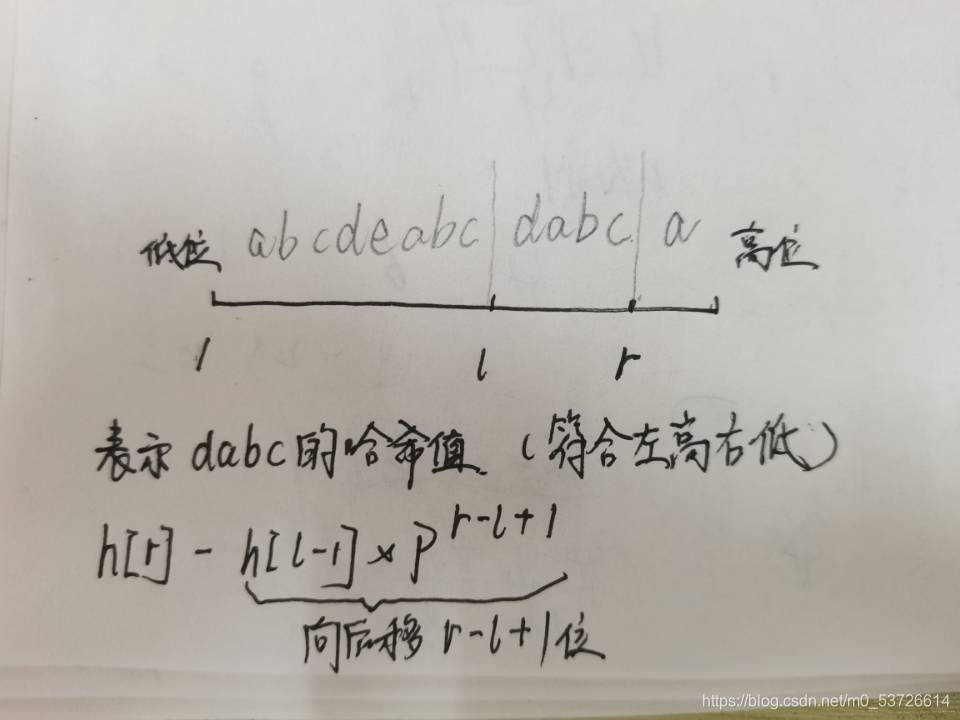 低位 abcdeabc dabc a 高位
1 l r
表示 dabc 的哈希值 (符合左高右低)
h[r] - h[l-1] × P^{r-l+1}
向后移 r-l+1 位
https://blog.csdn.net/m0_53726614